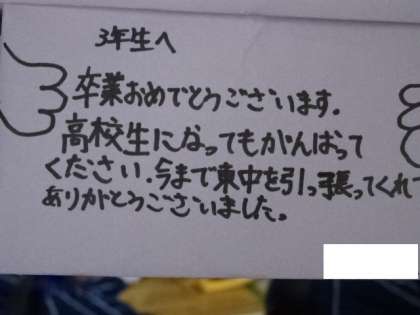 3年生へ
卒業おめでとうございます。
高校生になってもがんばって
ください。今まで東中を引っ張ってくれて
ありがとうございました。